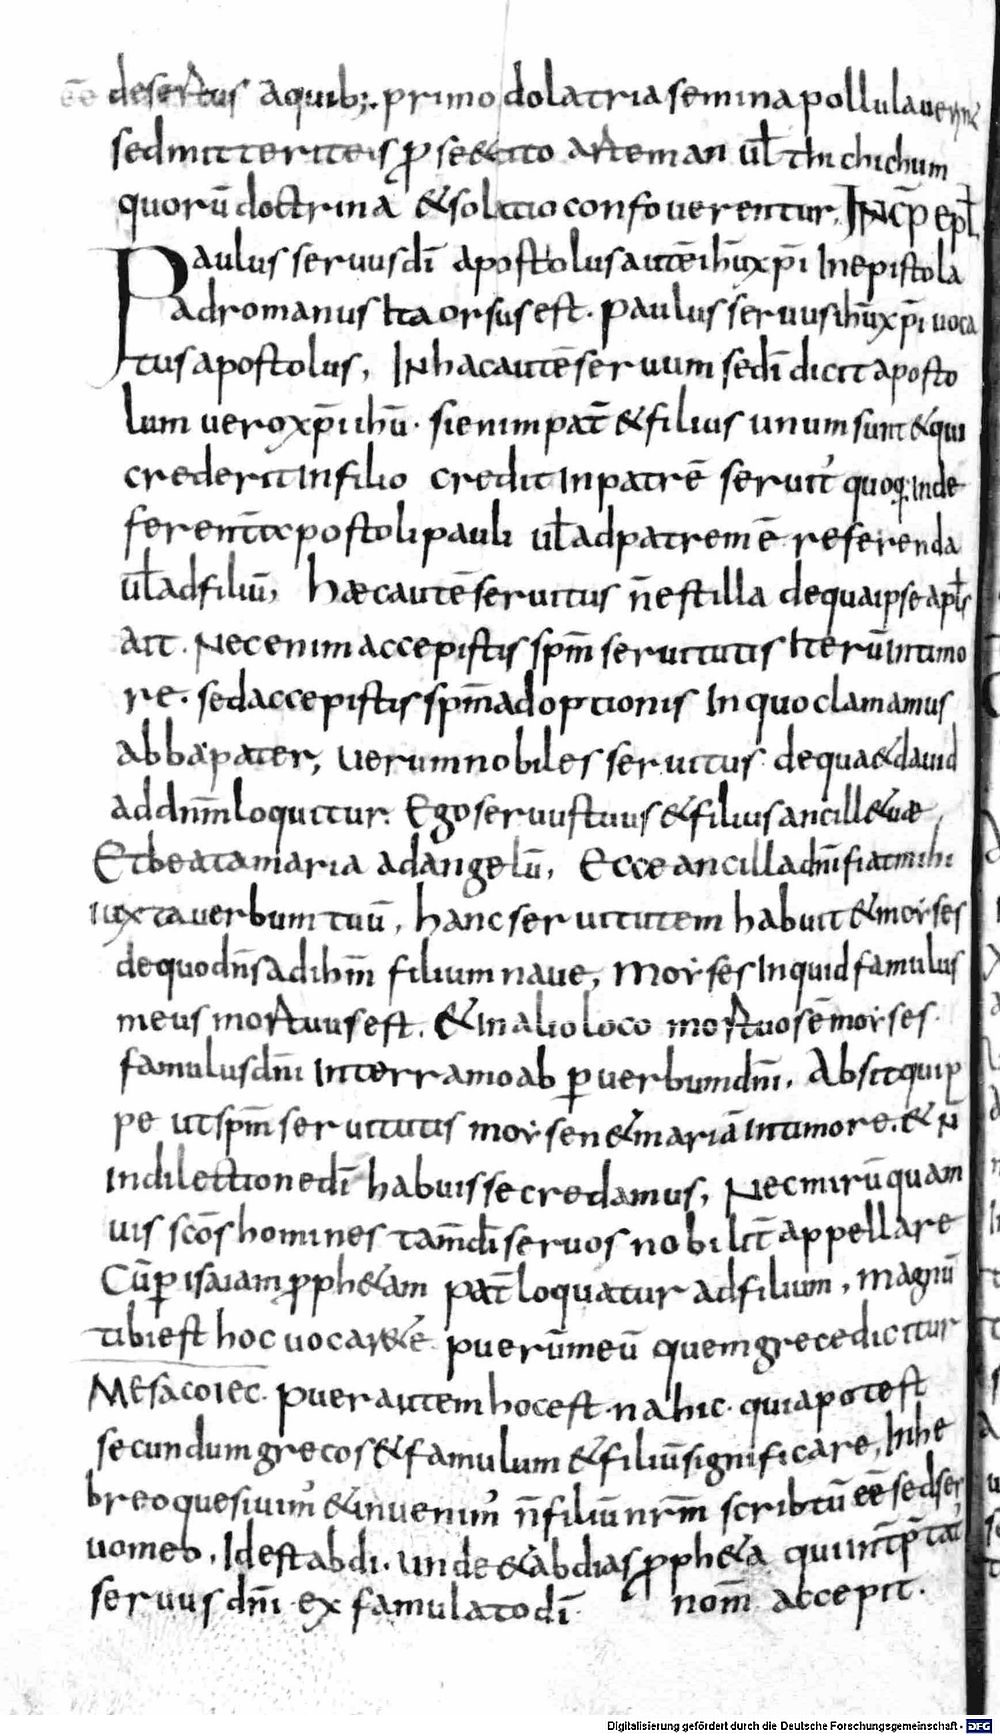 eē desertus aquib;. primo dolatria semina pollulauerunt
sed mitteriteis ꝓ secreto arteman ul̄ thichichum
quorū doctrina & solatio confouerentur. INCP̄ epl̄
Paulus seruus dī apostolus autē ihū xp̄i In epistola
ad romanus Ita orsus est. paulus seruus ihū xp̄i uoca
tus apostolus, IN hac autē seruum se dī dicit aposto
lum uero xp̄i ihū. si enim pat̄ & filius unum sunt & qui
crederit In filio credit In patrē seruit' quoq; Inde
ferent̄ apostoli pauli ul̄ ad patrem ē referenda
ul̄ ad filiū, hæc autē seruitus n̄ est illa de qua ipse apl̄s
ait. Nec enim accepistis sp̄m seruitutis Iterū In timo
re. sed accepistis sp̄m adoptionis In quo clamamus
abba pater, uerum nobiles seruitus de qua & dauid
ad dn̄m loquitur. Ego seruus tuus & filius ancille tuæ,
Et beata maria ad angelū, Ecce ancilla dn̄i fiat mihi
iuxta uerbum tuū, hanc seruitutem habuit & moyses
de quo dn̄s ad ihm̄ filium naue, moyses Inquid famulus
meus mortuus est. & In alio loco mortuos ē moyses
famulus dn̄i In terra moab ꝑ uerbum dn̄i. Absit quip
pe ut sp̄m seruitutis moysen & mariā In timore. & N̄
In dilectione dī habuisse credamus, Nec mirū quam
uis scōs homines tam̄ dī seruos nobilit̄ appellare
Cū ꝑ isaiam ꝓph&am pat̄ loquatur ad filium, magnū
tibi est hoc uocare te puerū meū quem grece dicitur
MEsacoiec. puer autem hoc est. na hic. quia potest
secundum grecos & famulum & filiū significare, In he
breo quesiuim' & inuenim' n̄ filiū nrm̄ scribtū eē sed ser
uo meo, Id est abdi. unde & abdias ꝓph&a qui int̄p̄tat'
seruus dn̄i ex famulato dī nom̄ accepit.
Digitalisierung gefördert durch die Deutsche Forschungsgemeinschaft - DFG